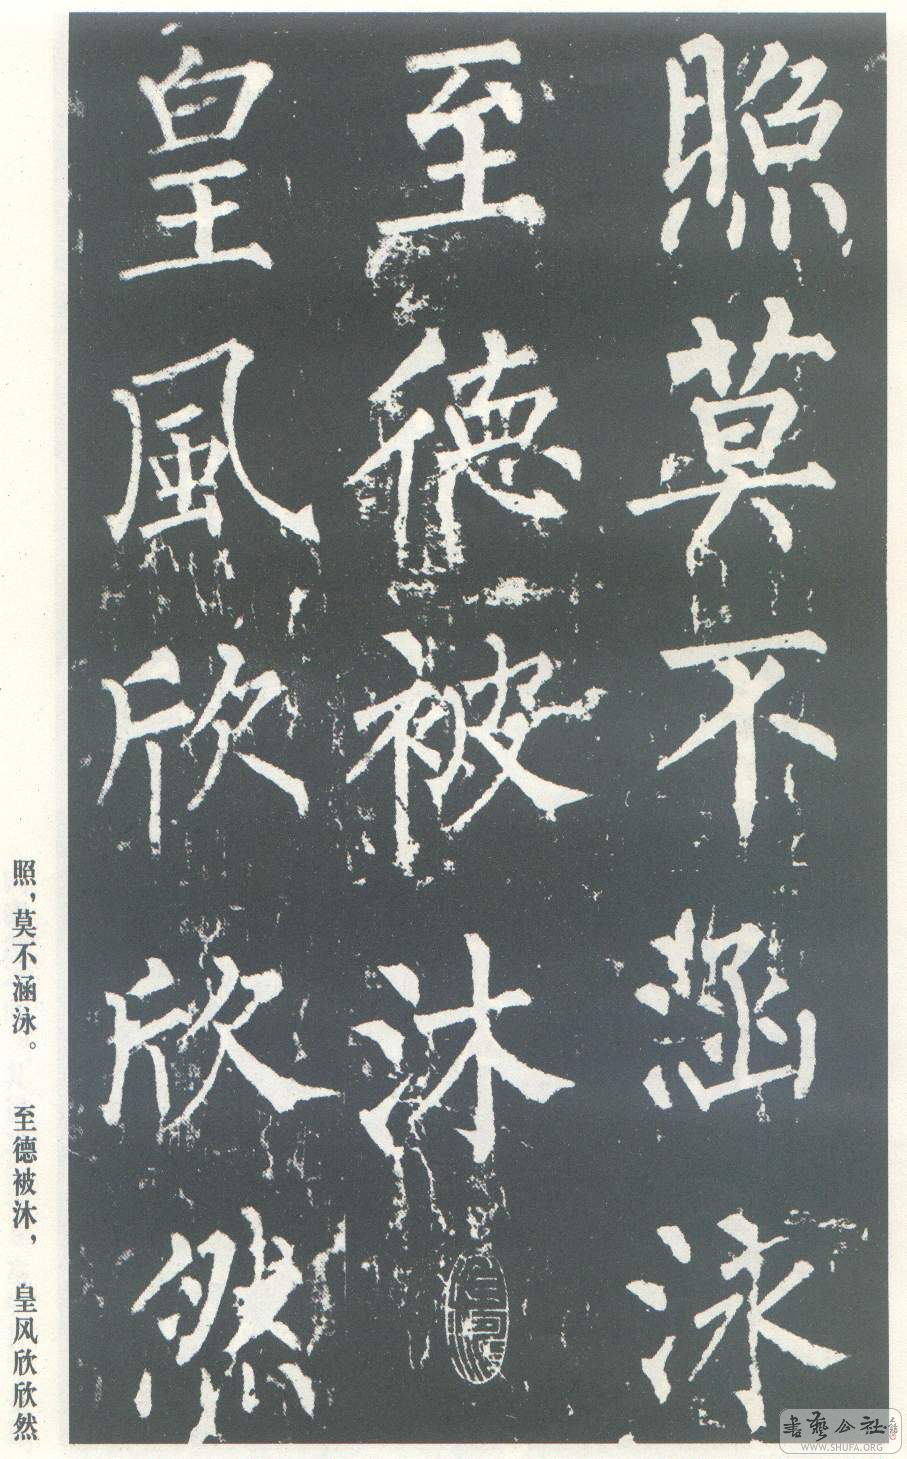 照莫不涵泳
至德被沐
皇風欣欣然
照，莫不涵泳。 至德被沐， 皇风欣欣然
書藝公社
WWW.SHUFA.ORG